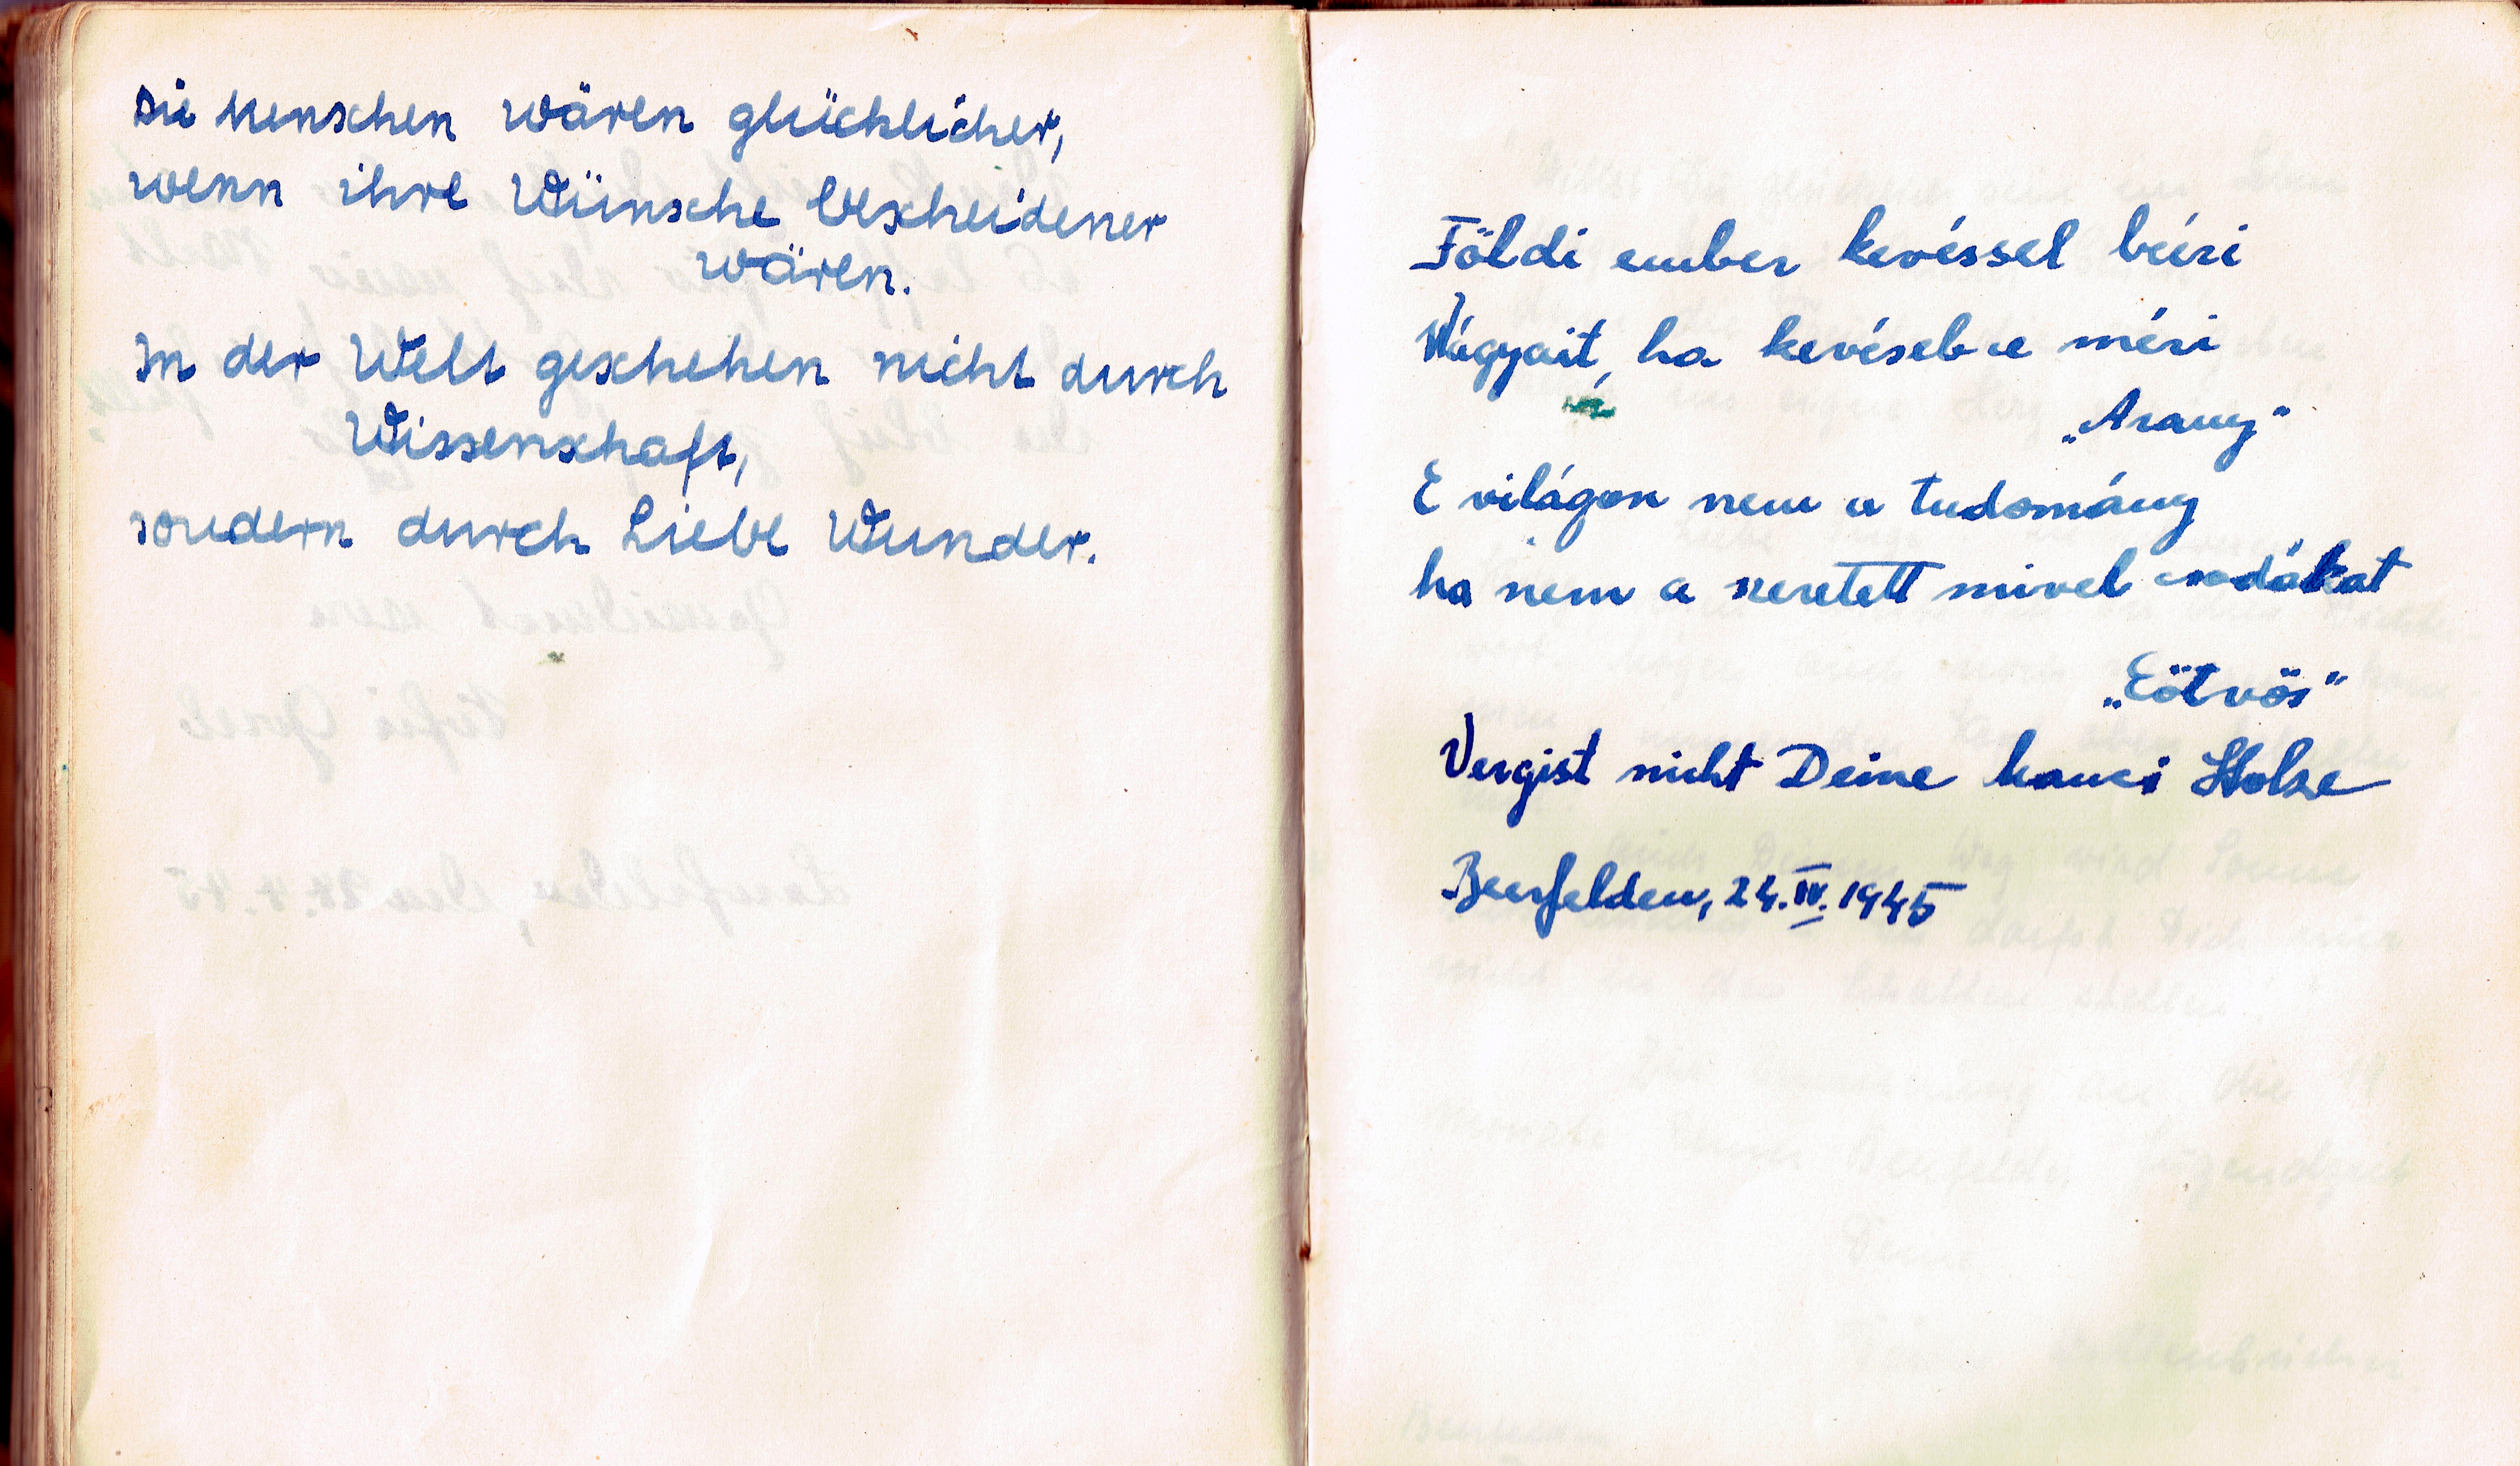 Die Menschen wären glücklicher,
wenn ihre Wünsche bescheidener
wären.
In der Welt geschehen nicht durch
Wissenschaft,
sondern durch Liebe Wunder.
Földi ember kevéssel béiri
Vágyait, ha kevésebre méri
„Arany"
E világon nem a tudomány
ha nem a szeretett mivel csodákat
„Eötvös"
Vergist nicht Deine Hanci
Beerfelden, 24.IV.1945